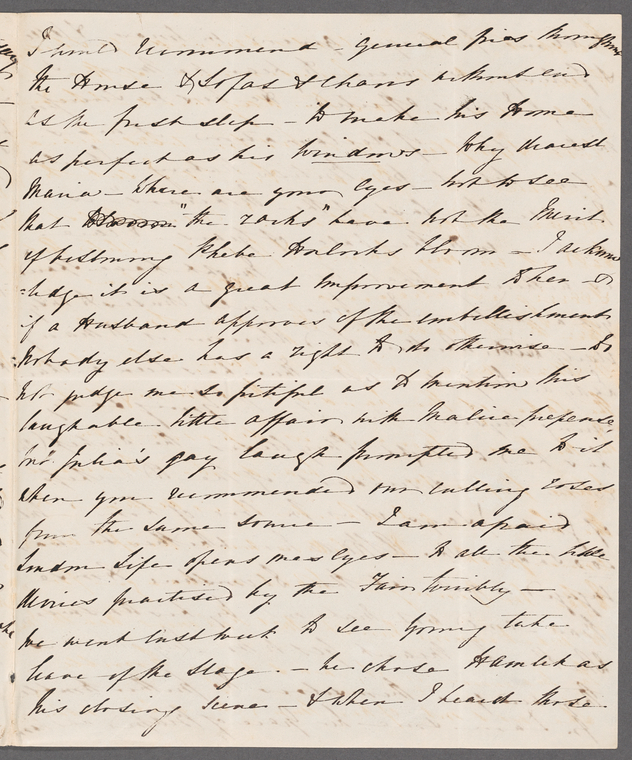 I would recommend - General fires through
the House & Sofas & Chairs without end
as the first step - to make his Home
as perfect as his windows - Why dearest
Maria - Where are your Eyes - not to see
that "the rocks" have not the Merit
of bestowing Phebe bloom - I acknow
=ledge it is a great Improvement to her - &
if a Husband approves of the embellishment
Nobody else has a right to do otherwise - Do
not judge me so pitiful as to mention this
laughable little affair with Malice prepense
but Julia's gay laugh prompted me to it
when you recommended our culling roses
from the same source - I am afraid
London Life opens ones Eyes - to all the little
devices practised by the Fair terribly -
we went last week to see Young take
leave of the Stage - he chose Hamlet as
his closing scene - & when I heard those